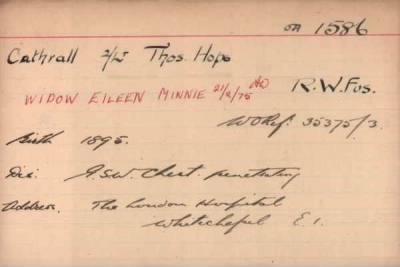 OA 1586
Cathrall 2/Lt Thos. Hope
WIDOW EILEEN MINNIE 21/2/75
R.W.Fus.
WO Ref. 35375/3.
Birth 1895.
Dis: G.S.W. Chest. penetrating
Address. The London Hospital
Whitechapel E.1.